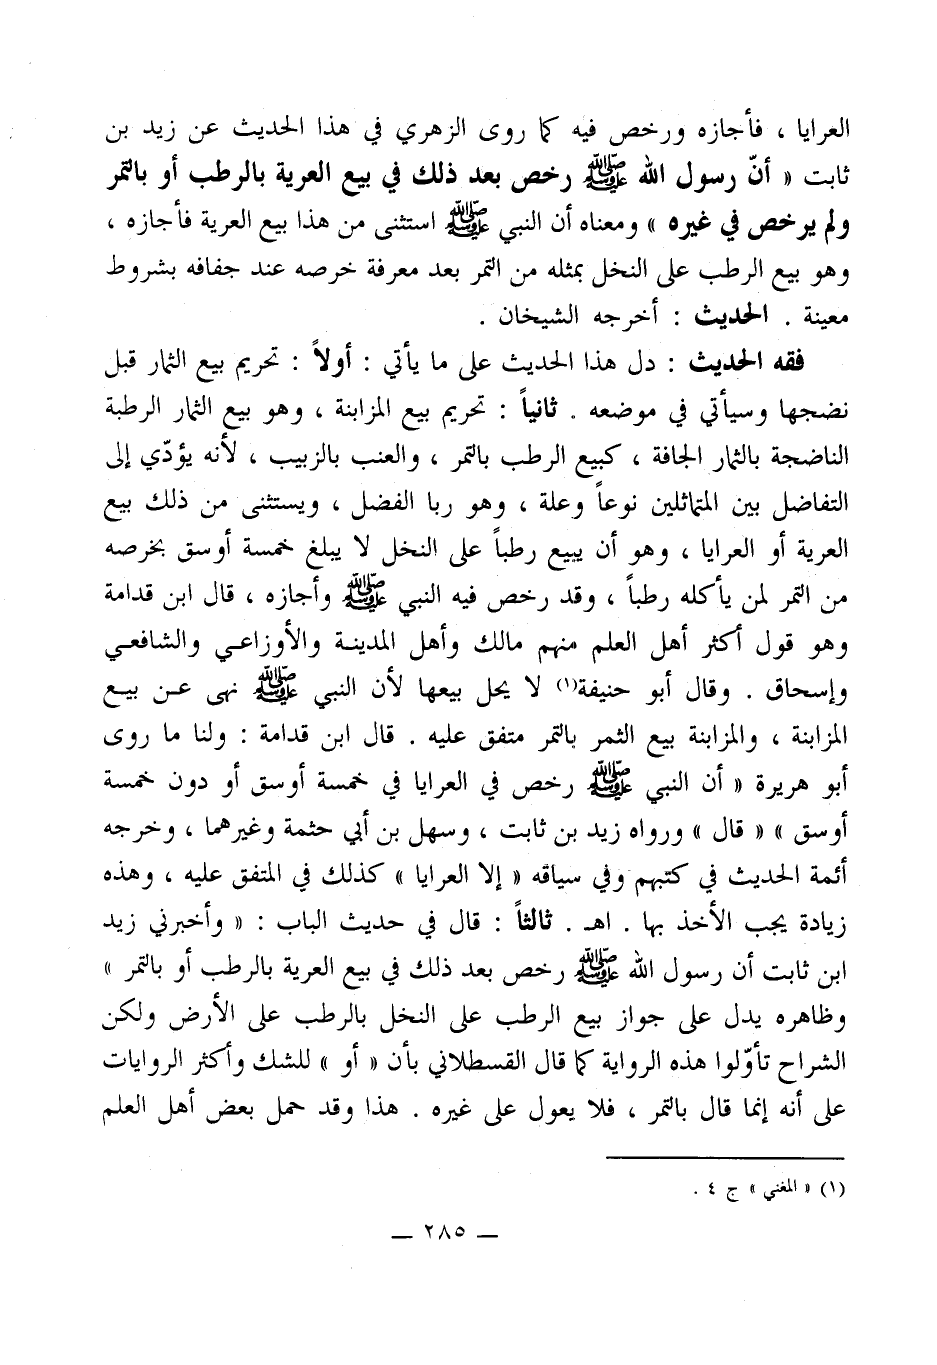 العرايا ، فأجازه ورخص فيه كما روى الزهري في هذا الحديث عن زيد بن
ثابت « أنّ رسول الله ﷺ رخص بعد ذلك في بيع العرية بالرطب أو بالتمر
ولم يرخص في غيره » ومعناه أن النبي ﷺ استثنى من هذا بيع العرية فأجازه ،
وهو بيع الرطب على النخل بمثله من التمر بعد معرفة خرصه عند جفافه بشروط
معينة . الحديث : أخرجه الشيخان .
فقه الحديث : دل هذا الحديث على ما يأتي : أولاً : تحريم بيع الثمار قبل
نضجها وسيأتي في موضعه . ثانياً : تحريم بيع المزابنة ، وهو بيع الثمار الرطبة
الناضجة بالثمار الجافة ، كبيع الرطب بالتمر ، والعنب بالزبيب ، لأنه يؤدّي إلى
التفاضل بين المتماثلين نوعاً وعلة ، وهو ربا الفضل ، ويستثنى من ذلك بيع
العرية أو العرايا ، وهو أن يبيع رطباً على النخل لا يبلغ خمسة أوسق بخرصه
من التمر لمن يأكله رطباً ، وقد رخص فيه النبي ﷺ وأجازه ، قال ابن قدامة
وهو قول أكثر أهل العلم منهم مالك وأهل المدينة والأوزاعي والشافعي
وإسحاق . وقال أبو حنيفة(١) لا يحل بيعها لأن النبي ﷺ نهى عن بيع
المزابنة ، والمزابنة بيع الثمر بالتمر متفق عليه . قال ابن قدامة : ولنا ما روى
أبو هريرة « أن النبي ﷺ رخص في العرايا في خمسة أوسق أو دون خمسة
أوسق » « قال » ورواه زيد بن ثابت ، وسهل بن أبي حثمة وغيرهما ، وخرجه
أئمة الحديث في كتبهم وفي سياقه « إلا العرايا » كذلك في المتفق عليه ، وهذه
زيادة يجب الأخذ بها . اهـ . ثالثاً : قال في حديث الباب : « وأخبرني زيد
ابن ثابت أن رسول الله ﷺ رخص بعد ذلك في بيع العرية بالرطب أو بالتمر »
وظاهره يدل على جواز بيع الرطب على النخل بالرطب على الأرض ولكن
الشراح تأوّلوا هذه الرواية كما قال القسطلاني بأن « أو » للشك وأكثر الروايات
على أنه إنما قال بالتمر ، فلا يعول على غيره . هذا وقد حمل بعض أهل العلم
(١) « المغني » ج ٤ .
— ٢٨٥ —